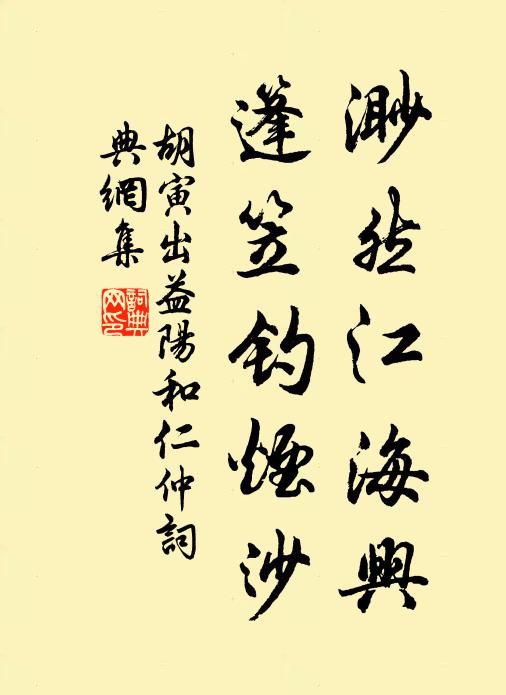 渺然江海興
蓬笠釣煙沙
胡寅出益陽和仁仲詞
典網集
詞典
网印